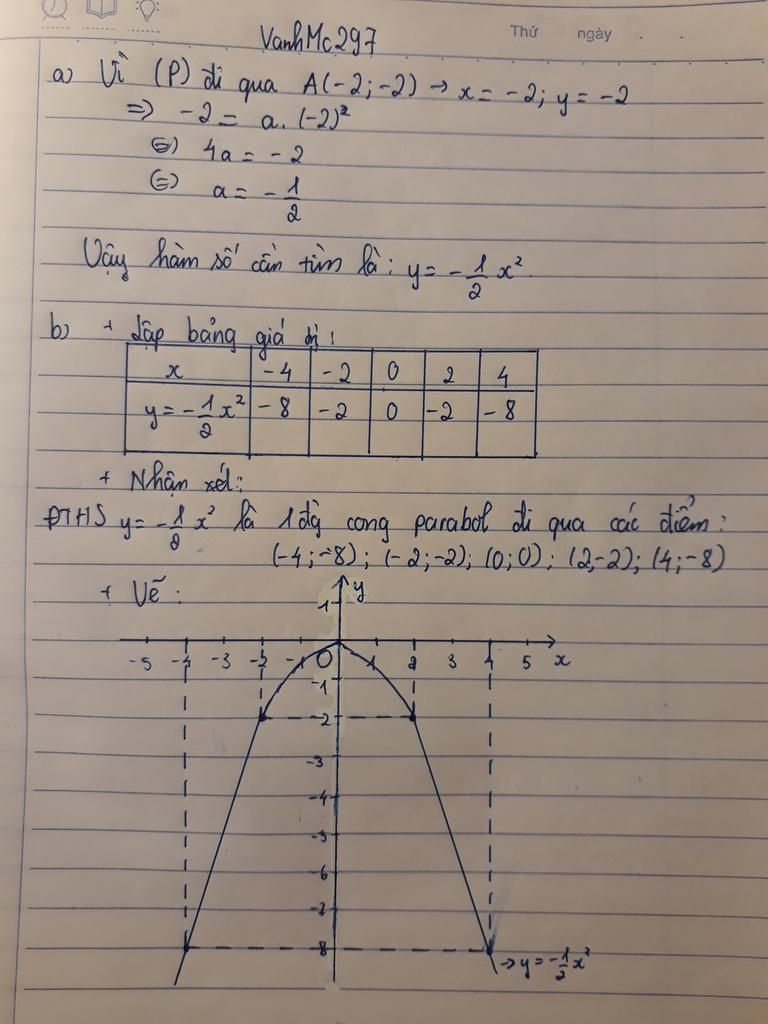 Thứ ngày . .
VanhMc297
a) Vì (P) đi qua A(-2; -2) → x = -2; y = -2
=> -2 = a. (-2)²
<=> 4a = -2
<=> a = - 1/2
Vậy hàm số cần tìm là: y = - 1/2 x².
b) + Lập bảng giá trị:
x -4 -2 0 2 4
y = - 1/2 x² -8 -2 0 -2 -8
+ Nhận xét:
ĐTHS y = - 1/2 x² là 1 đg cong parabol đi qua các điểm:
(-4; -8); (-2; -2); (0; 0); (2; -2); (4; -8)
+ Vẽ:
y
1
-5 -4 -3 -2 -1 0 1 2 3 4 5 x
-1
-2
-3
-4
-5
-6
-7
-8
→ y = - 1/2 x²